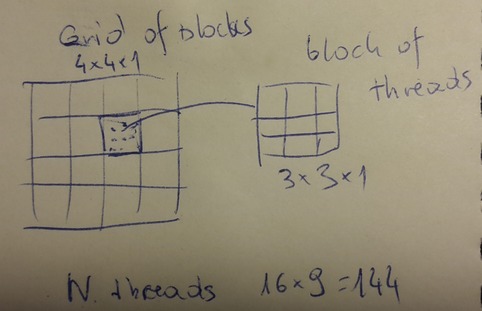 Grid of blocks
4×4×1
block of
threads
3×3×1
N. threads 16×9=144